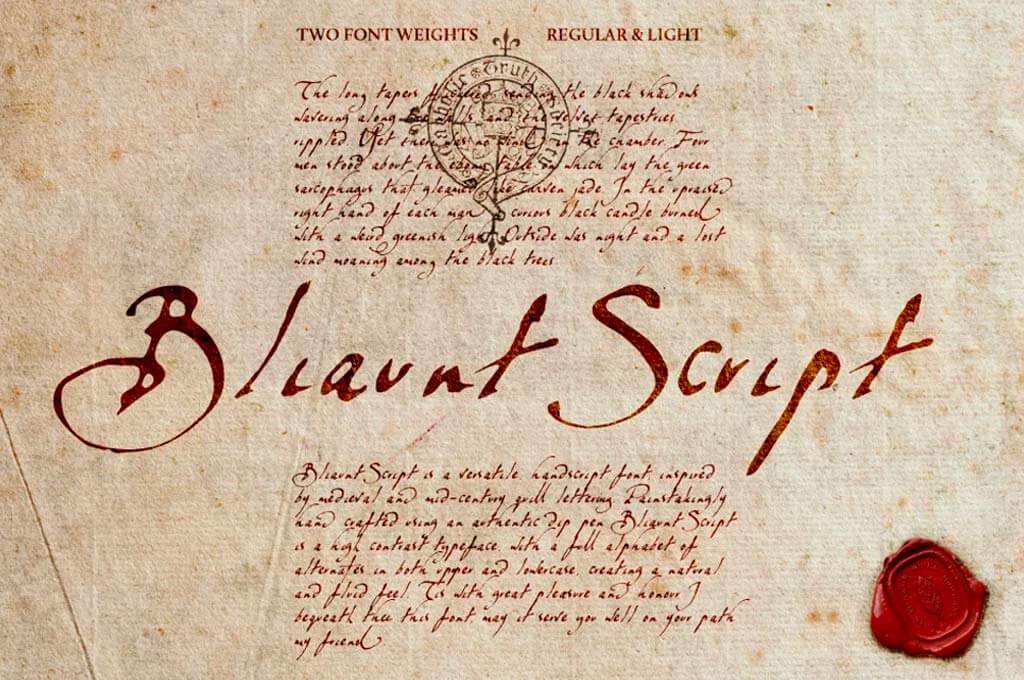 TWO FONT WEIGHTS REGULAR & LIGHT
Catholic Truth Society
The long tapers flickered, sending the black shadows
wavering along the walls, and the velvet tapestries
rippled. Yet there was no wind in the chamber. Four
men stood about the ebony table on which lay the green
sarcophagus that gleamed like carven jade. In the upraised
right hand of each man a curious black candle burned
with a weird greenish light. Outside was night and a lost
wind moaning among the black trees.
Bliaunt Script
Bliaunt Script is a versatile, handscript font, inspired
by medieval and mid-century quill lettering. Painstakingly
hand crafted using an authentic dip pen Bliaunt Script
is a high contrast typeface, with a full alphabet of
alternates in both upper and lowercase, creating a natural
and fluid feel. Tis with great pleasure and honour I
bequeath thee this font, may it serve you well on your path
my friend